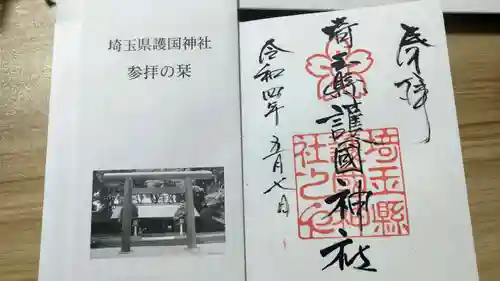 埼玉県護国神社
参拝の栞
奉拝
埼玉縣護國神社
令和四年 五月七日
埼玉縣
護國神
社之印